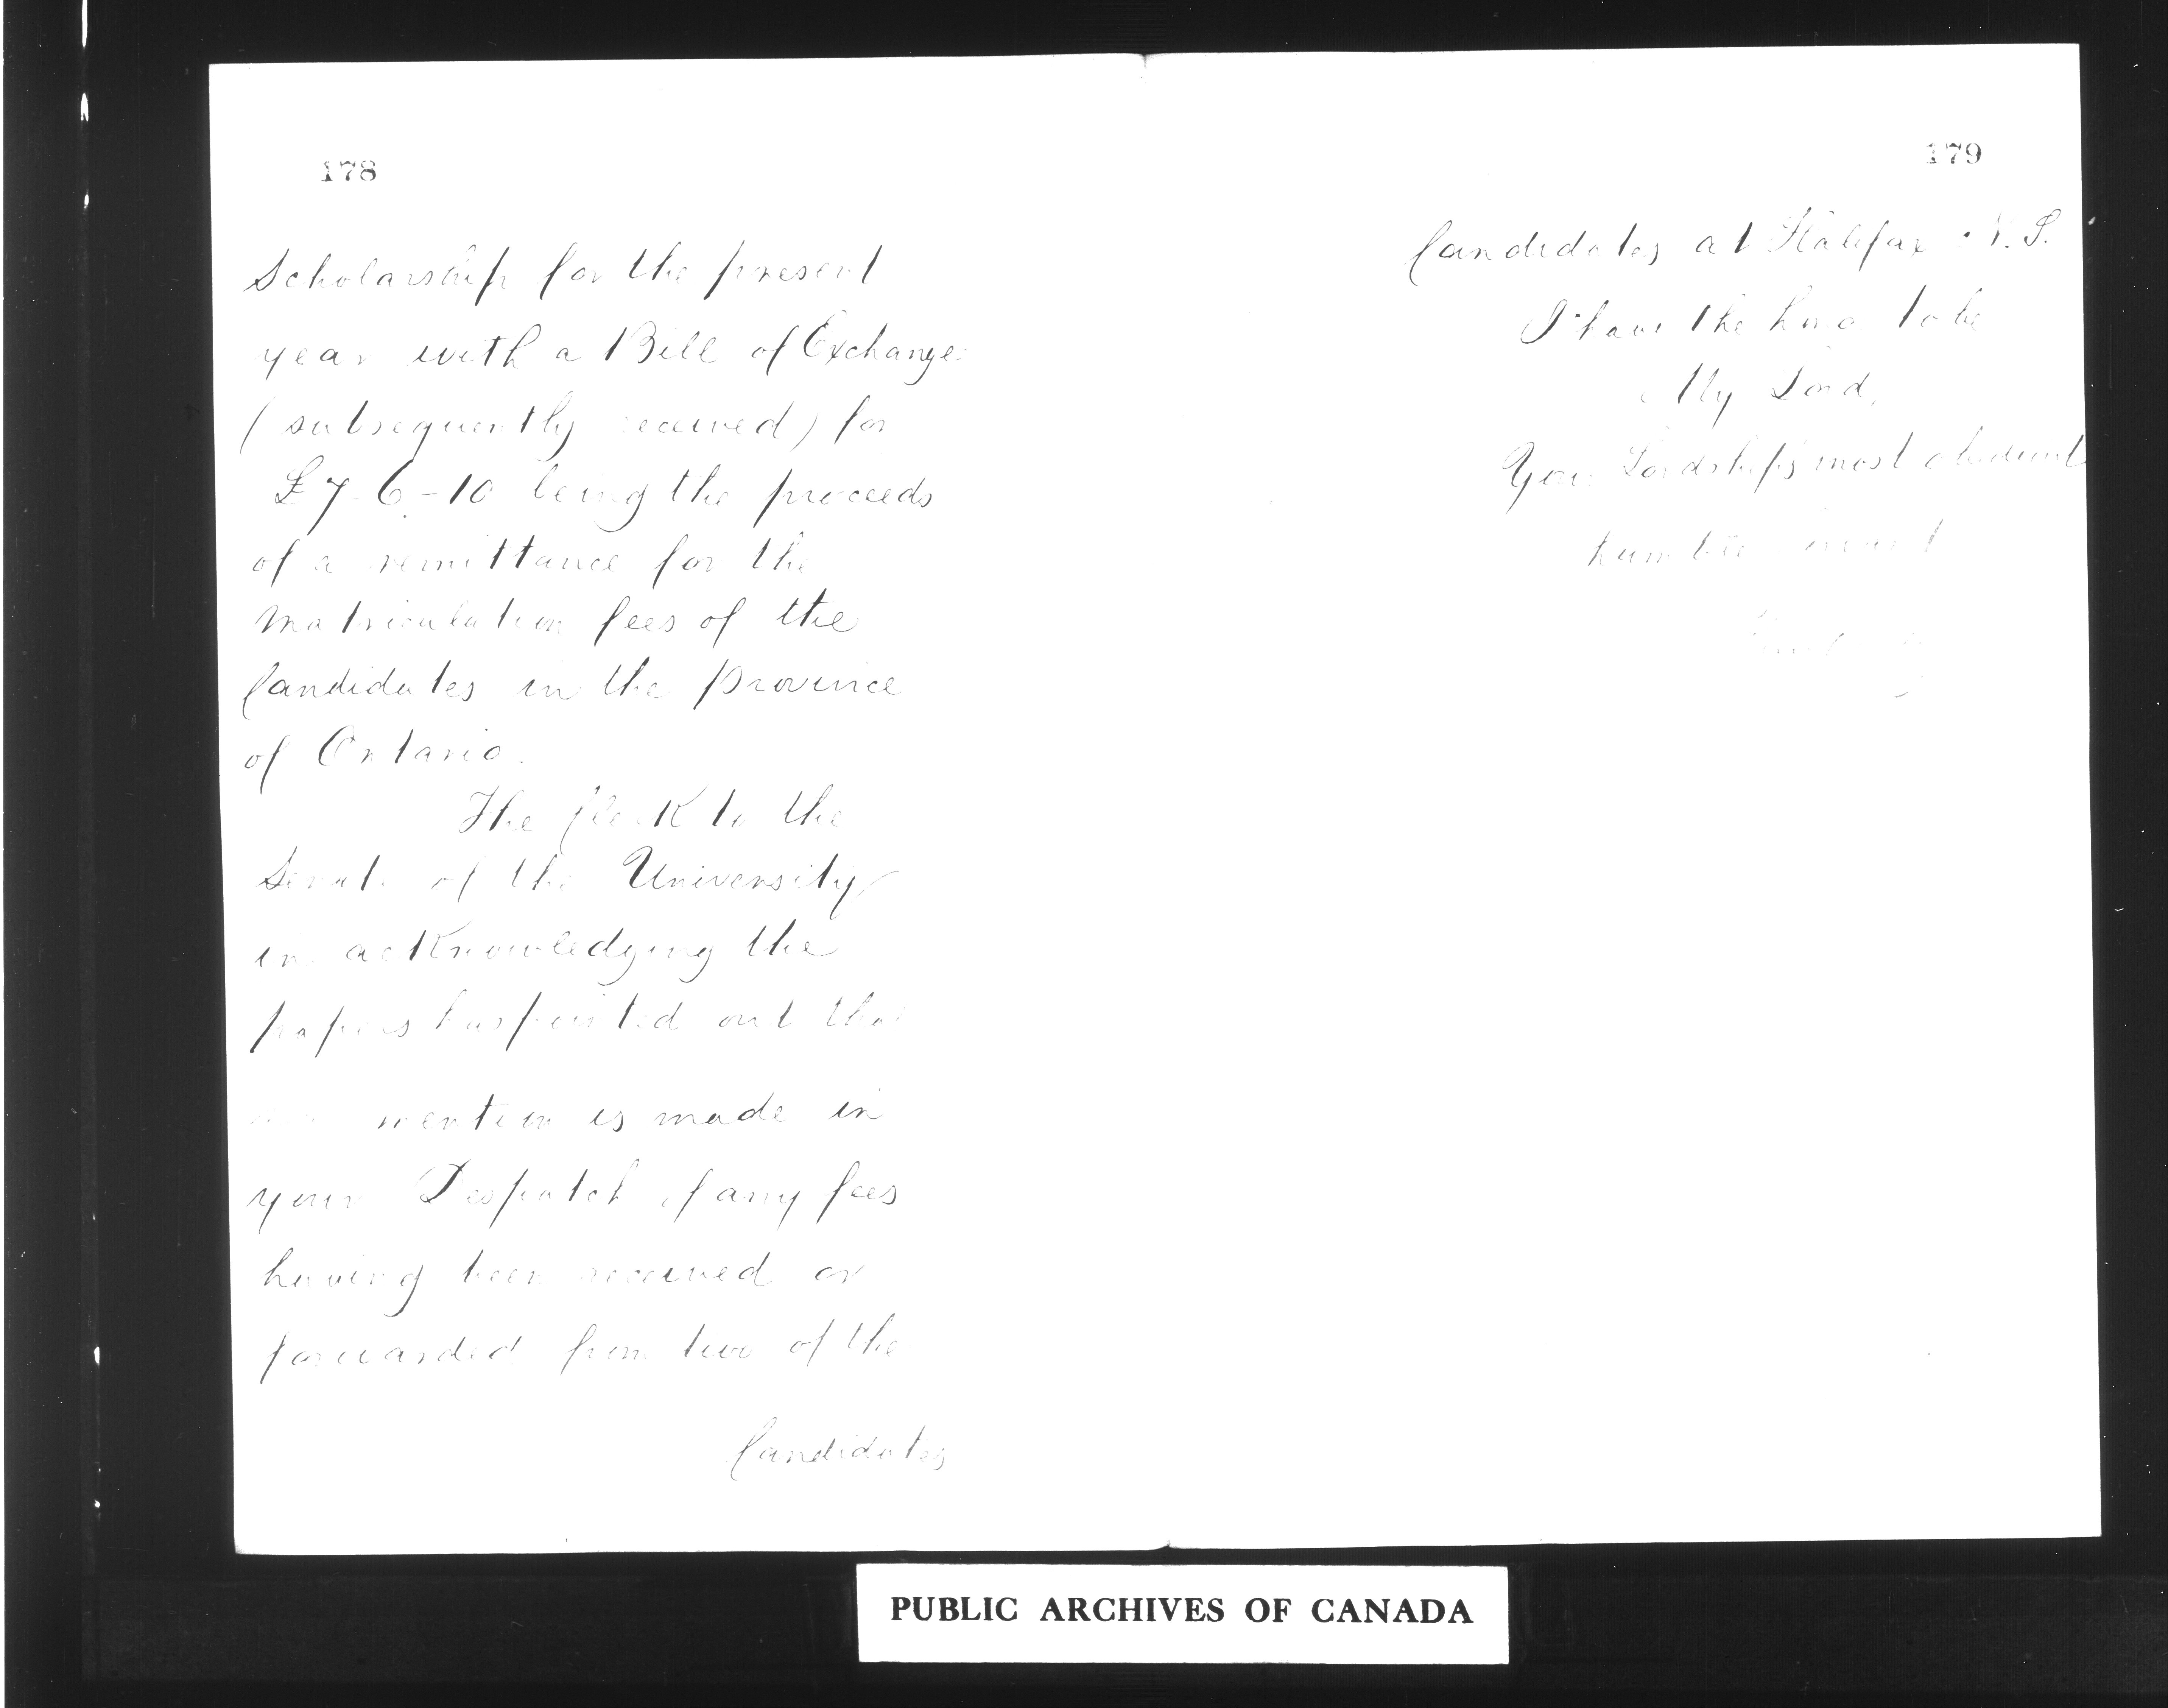 178
Scholarship for the present
year with a Bill of Exchange
(subsequently received) for
£7-6-10 being the proceeds
of a remittance for the
Matriculation fees of the
Candidates in the Province
of Ontario.
The Clerk to the
Senate of the University
in acknowledging the
papers has pointed out that
mention is made in
your Despatch of any fees
having been received or
forwarded from two of the
Candidates
179
Candidates at Halifax N.S.
I have the honor to be
My Lord,
Your Lordship's most obedient
humble servant
PUBLIC ARCHIVES OF CANADA